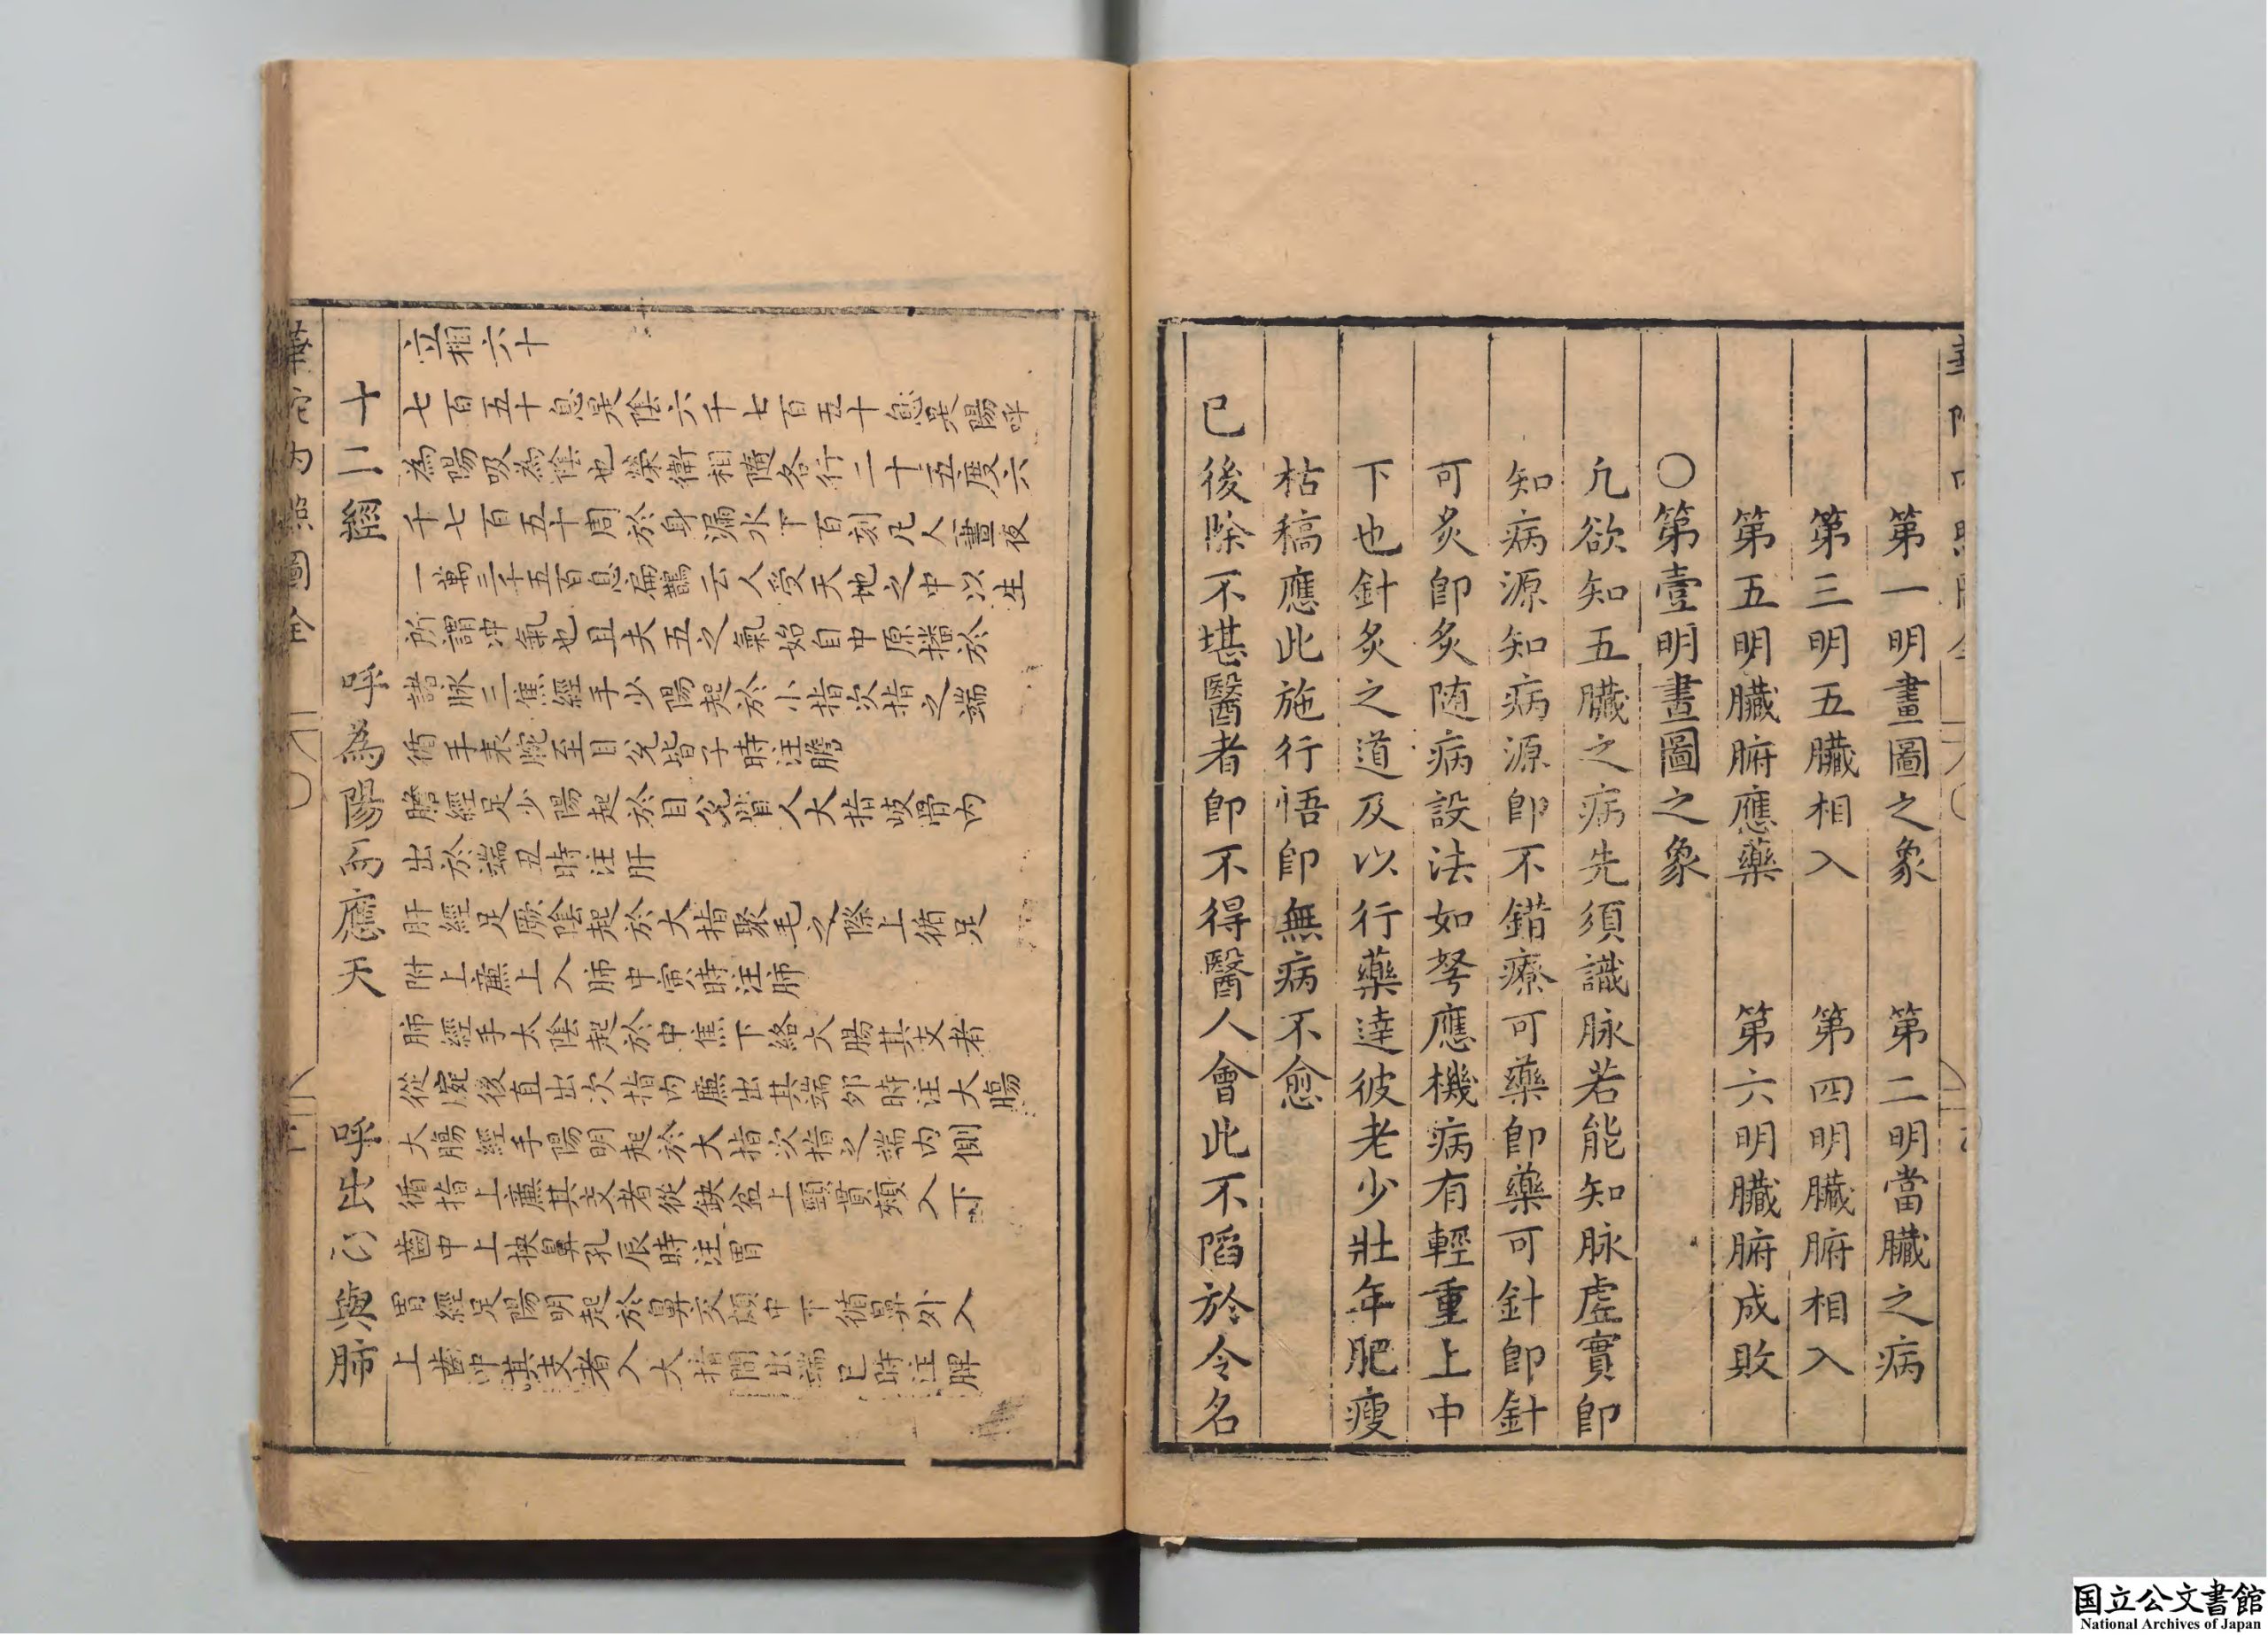 第一明畫圖之象　第二明當臟之病
第三明五臟相入　第四明臟腑相入
第五明臟腑應藥　第六明臟腑成敗
〇第壹明畫圖之象
凢欲知五臟之病先須識脉若能知脉虛實卽
知病源知病源卽不錯療可藥卽藥可針卽針
可炙卽炙随病設法如弩應機病有輕重上中
下也針炙之道及以行藥達彼老少壯年肥瘦
枯稿應此施行悟卽無病不愈
已後除不堪醫者卽不得醫人會此不䧟於令名
立相六十
十二經　呼為陽而應天　呼出心與肺
七百五十息是陰六千七百五十息是陽呼
為陽吸為陰也榮衛相隨各行二十五度六
千七百五十周於身漏水下百刻凡人晝夜
一萬三千五百息扁鵲云人受天地之中以生
所謂冲氣也且夫五之氣始自中原播於
諸脉三焦經手少陽起於小指次指之端
循手表腕至目兊眥子時注膽
膽經足少陽起於目兊眥入大指岐骨內
出於端丑時注肝
肝經足厥陰起於大指聚毛之際上循足
附上廉上入肺中寅時注肺
肺經手太陰起於中焦下絡大腸其支者
從腕後直出次指內廉出其端夘時注大腸
大腸經手陽明起於大指次指之端內側
循指上廉其支者從缺盆上頸貫頰入下
齒中上挾鼻孔辰時注胃
胃經足陽明起於鼻交頞中下循鼻外入
上齒中其支者入大指間出端巳時注脾
華佗內照圖全
国立公文書館
National Archives of Japan